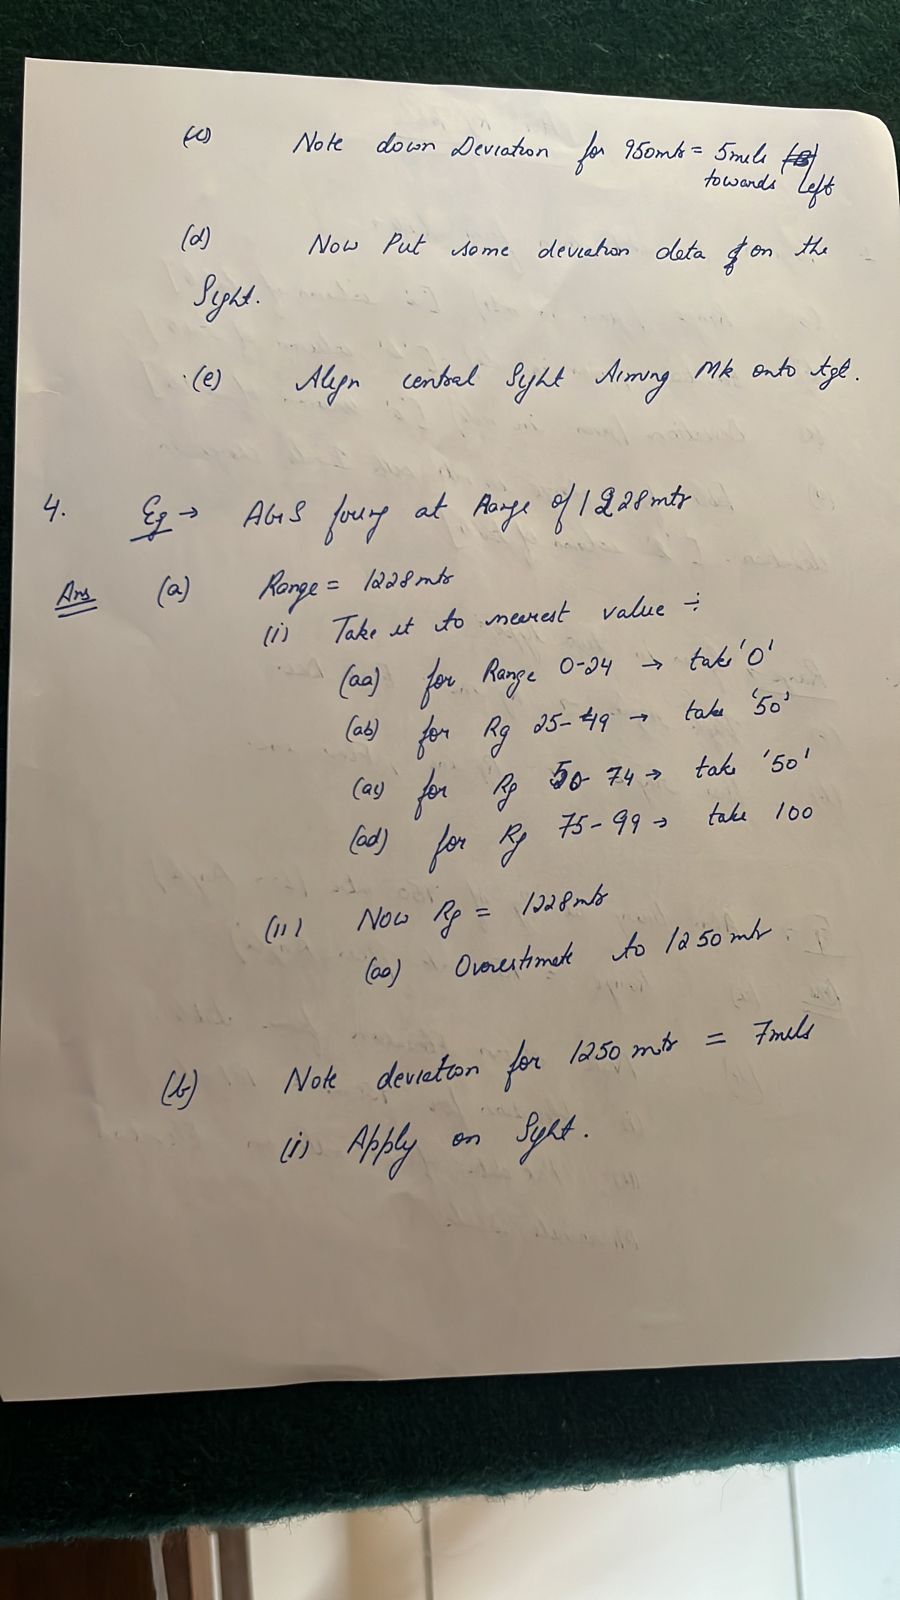 (c) Note down Deviation for 950mtr = 5mils
towards left
(d) Now Put some deviation data on the
Sight.
(e) Align central Sight Aiming Mk onto tgt.
4. Eg → AGS firing at Range of 1228mtr
Ans (a) Range = 1228mtr
(i) Take it to nearest value ÷
(aa) for Range 0-24 → take '0'
(ab) for Rg 25-49 → take '50'
(ac) for Rg 50-74 → take '50'
(ad) for Rg 75-99 → take 100
(ii) Now Rg = 1228mtr
(aa) Overestimate to 1250mtr
(b) Note deviation for 1250 mtr = 7mils
(i) Apply on Sight.